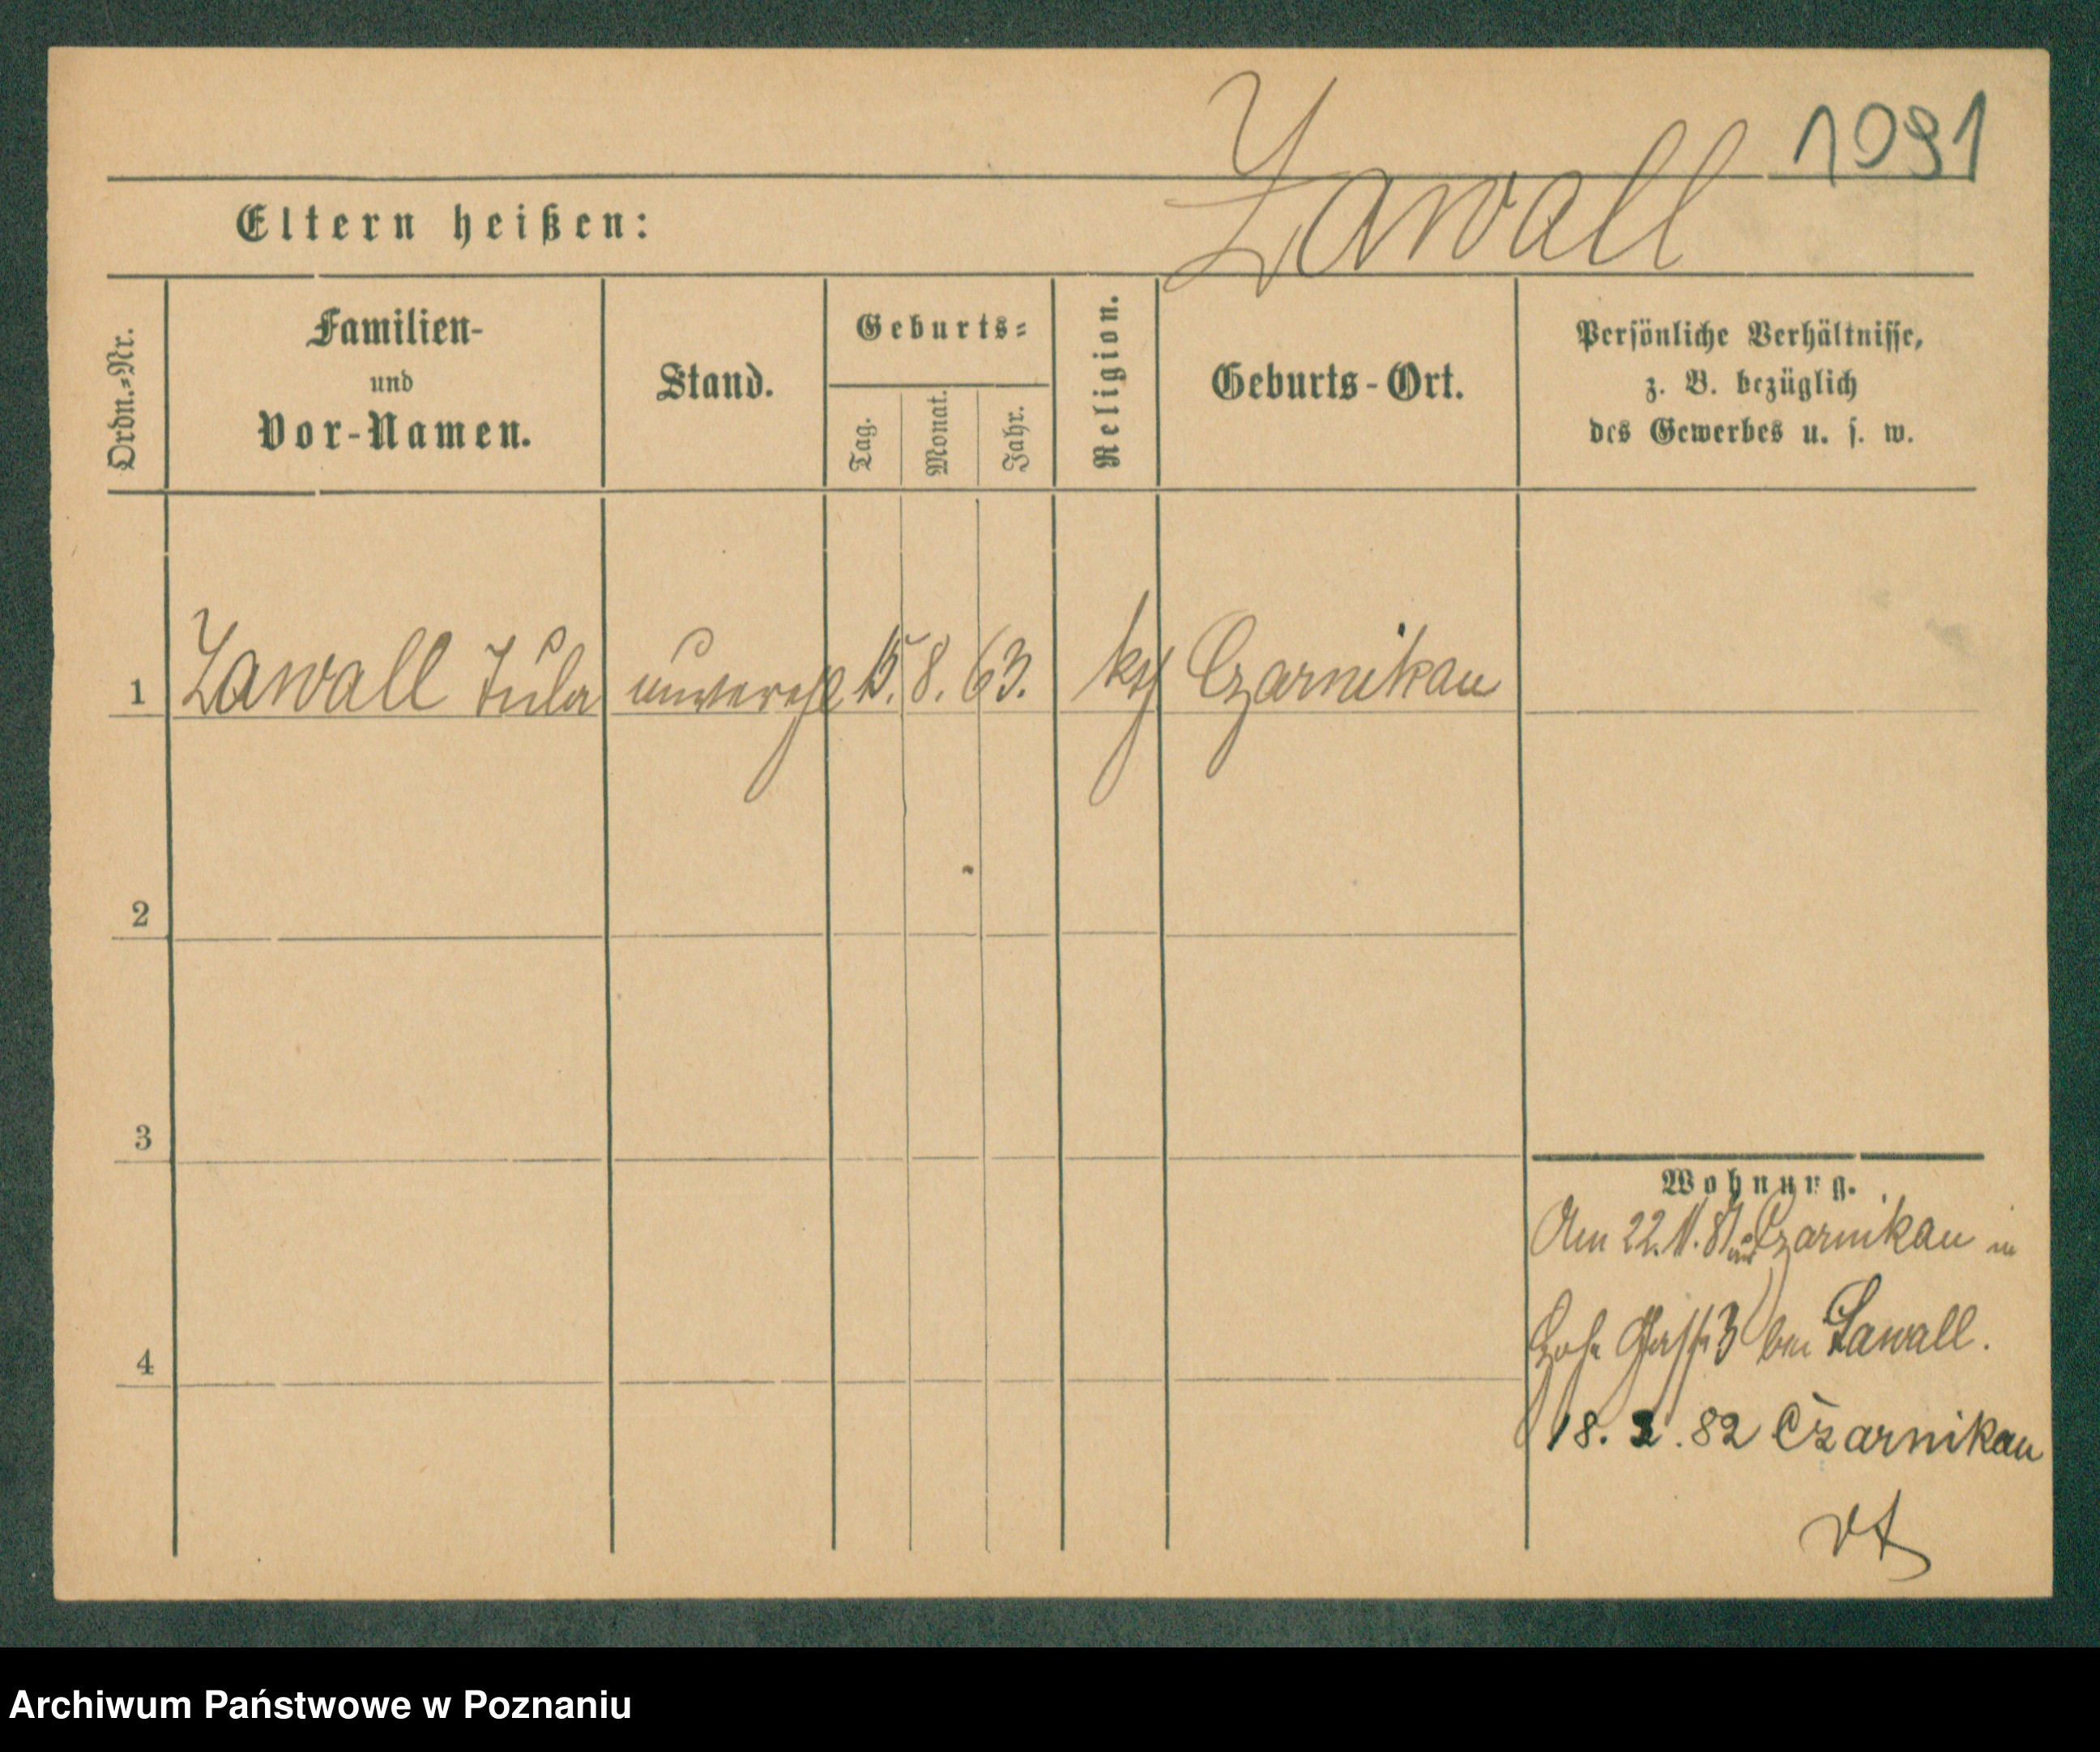 1091
Lawall
Eltern heißen:
Ordn.-Nr.
Familien-
und
Vor-Namen.
Stand.
Geburts-
Tag.
Monat.
Jahr.
Religion.
Geburts-Ort.
Persönliche Verhältnisse,
z. B. bezüglich
des Gewerbes u. s. w.
1 Lawall Jula unverehl 15. 8. 63. kth Czarnikau
2
3
4
Wohnung.
Am 22.11.81 aus Czarnikau in
bei Lawall.
18. 2. 82 Czarnikau
Archiwum Państwowe w Poznaniu